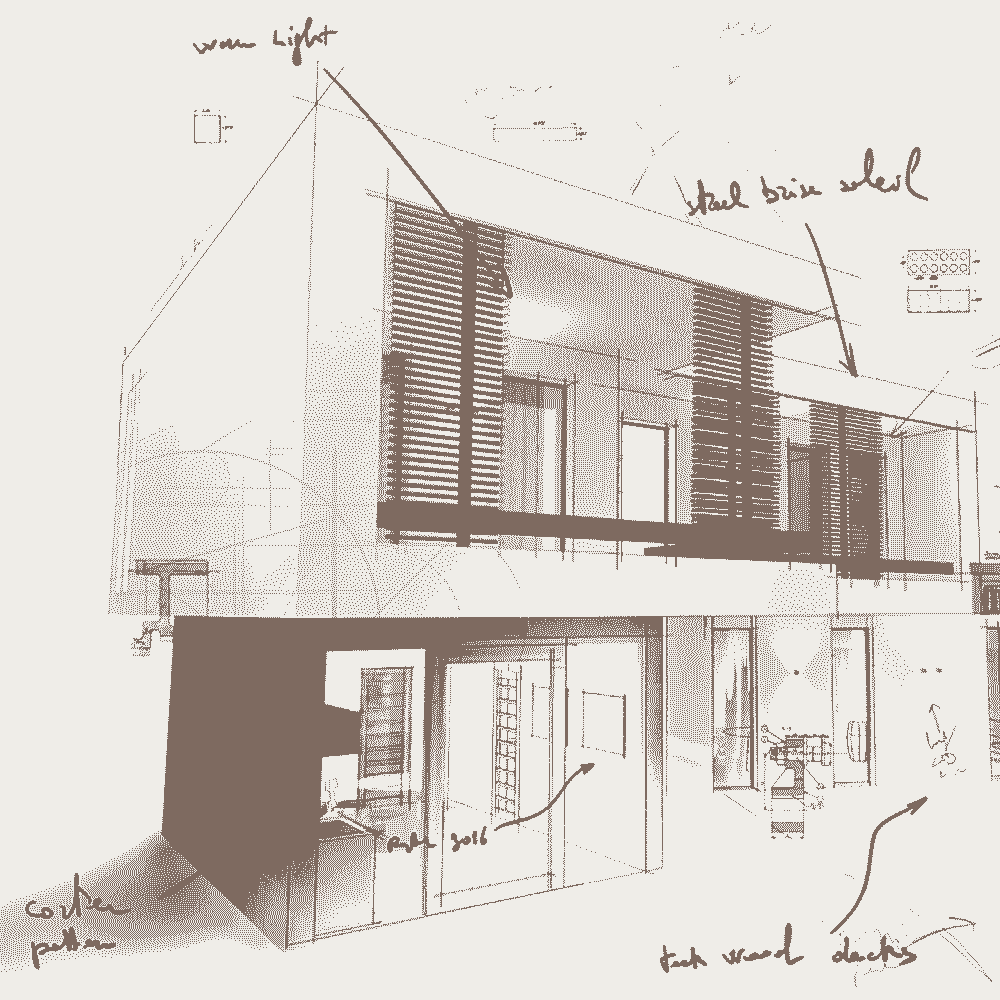 warm light
steel brise soleil
2016
corten
pattern
teck wood decks